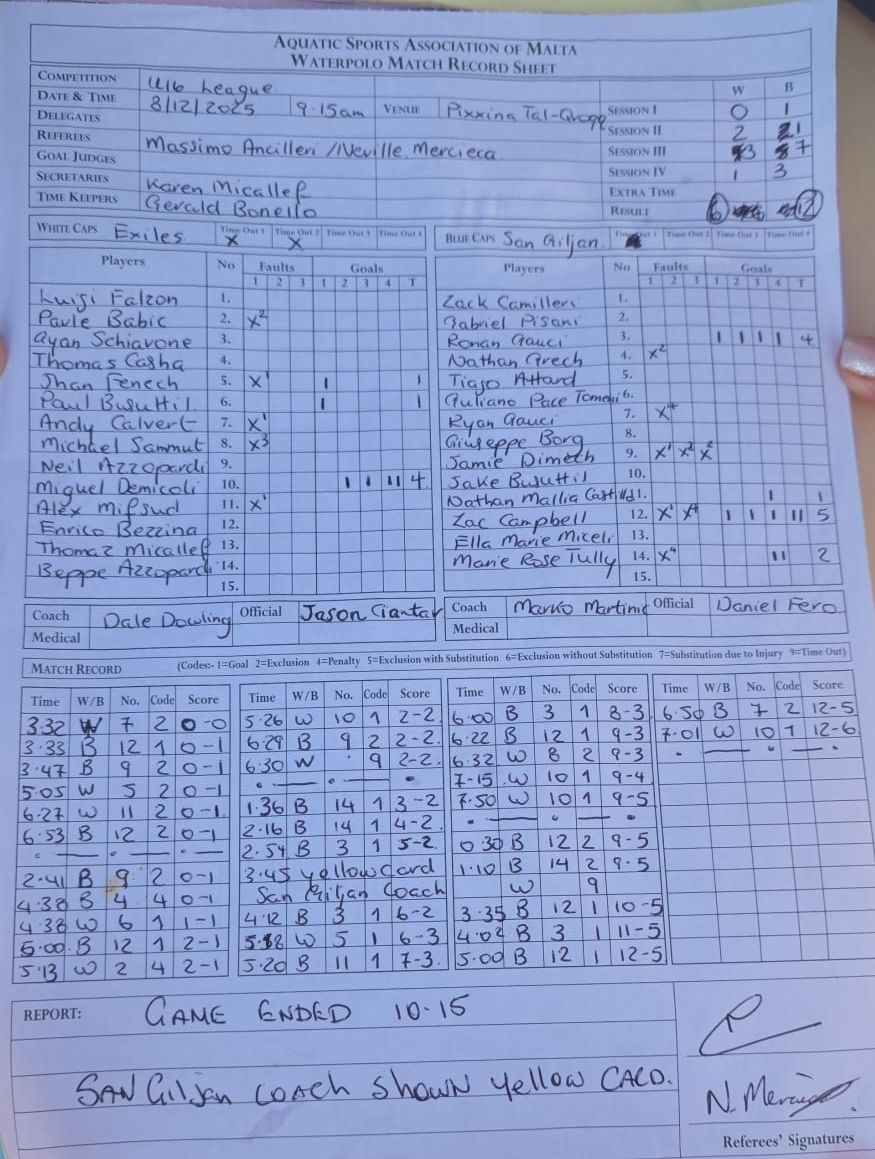 AQUATIC SPORTS ASSOCIATION OF MALTA
WATERPOLO MATCH RECORD SHEET
COMPETITION U16 League W B
DATE & TIME 8/12/2025 9.15am VENUE Pixxina Tal-Qroqq SESSION I 0 1
DELEGATES SESSION II 2 1
REFEREES Massimo Ancilleri / Neville Mercieca SESSION III 3 7
GOAL JUDGES SESSION IV 1 3
SECRETARIES Karen Micallef EXTRA TIME
TIME KEEPERS Gerald Bonello RESULT 6 12
WHITE CAPS Exiles Time Out 1 X Time Out 2 X Time Out 3 Time Out 4
BLUE CAPS San Giljan Time Out 1 Time Out 2 Time Out 3 Time Out 4
Players No Faults Goals
1 2 3 1 2 3 4 T
Luigi Falzon 1.
Pavle Babic 2. X2
Ryan Schiavone 3.
Thomas Casha 4.
Jhan Fenech 5. X1 1 1
Paul Busuttil 6. 1 1
Andy Calvert 7. X1
Michael Sammut 8. X3
Neil Azzopardi 9.
Miguel Demicoli 10. 1 1 11 4
Alex Mifsud 11. X1
Enrico Bezzina 12.
Thomaz Micallef 13.
Beppe Azzopardi 14.
15.
Players No Faults Goals
1 2 3 1 2 3 4 T
Zack Camilleri 1.
Gabriel Pisani 2.
Ronan Gauci 3. 1 1 1 1 4
Nathan Grech 4. X2
Tiago Attard 5.
Guliano Pace Tomeni 6.
Ryan Gauci 7. X4
Giuseppe Borg 8.
Jamie Dimech 9. X1 X2 X2
Jake Busuttil 10.
Nathan Mallia Cast 11. 1 1
Zac Campbell 12. X1 X4 1 1 1 11 5
Ella Marie Miceli 13.
Marie Rose Tully 14. X4 11 2
15.
Coach Dale Dowling Official Jason Ciantar
Medical
Coach Marko Martinic Official Daniel Fero
Medical
MATCH RECORD (Codes:- 1=Goal 2=Exclusion 4=Penalty 5=Exclusion with Substitution 6=Exclusion without Substitution 7=Substitution due to Injury 9=Time Out)
Time W/B No. Code Score
3.32 W 7 2 0-0
3.33 B 12 1 0-1
3.47 B 9 2 0-1
5.05 W 5 2 0-1
6.27 W 11 2 0-1
6.53 B 12 2 0-1
2.41 B 9 2 0-1
4.38 B 4 4 0-1
4.38 W 6 1 1-1
5.00 B 12 1 2-1
5.13 W 2 4 2-1
Time W/B No. Code Score
5.26 W 10 1 2-2
6.29 B 9 2 2-2
6.30 W 9 2-2
1.36 B 14 1 3-2
2.16 B 14 1 4-2
2.54 B 3 1 5-2
3.45 yellow card
San Giljan Coach
4.12 B 3 1 6-2
5.18 W 5 1 6-3
5.20 B 11 1 7-3
Time W/B No. Code Score
6.00 B 3 1 8-3
6.22 B 12 1 9-3
6.32 W 8 2 9-3
7-15 W 10 1 9-4
7.50 W 10 1 9-5
0 30 B 12 2 9-5
1.10 B 14 2 9-5
W 9
3.35 B 12 1 10-5
4.02 B 3 1 11-5
5.00 B 12 1 12-5
Time W/B No. Code Score
6.50 B 7 2 12-5
7.01 W 10 1 12-6
REPORT: GAME ENDED 10.15
SAN Giljan coach SHOWN yellow CACD.
N. Mercieca
Referees' Signatures